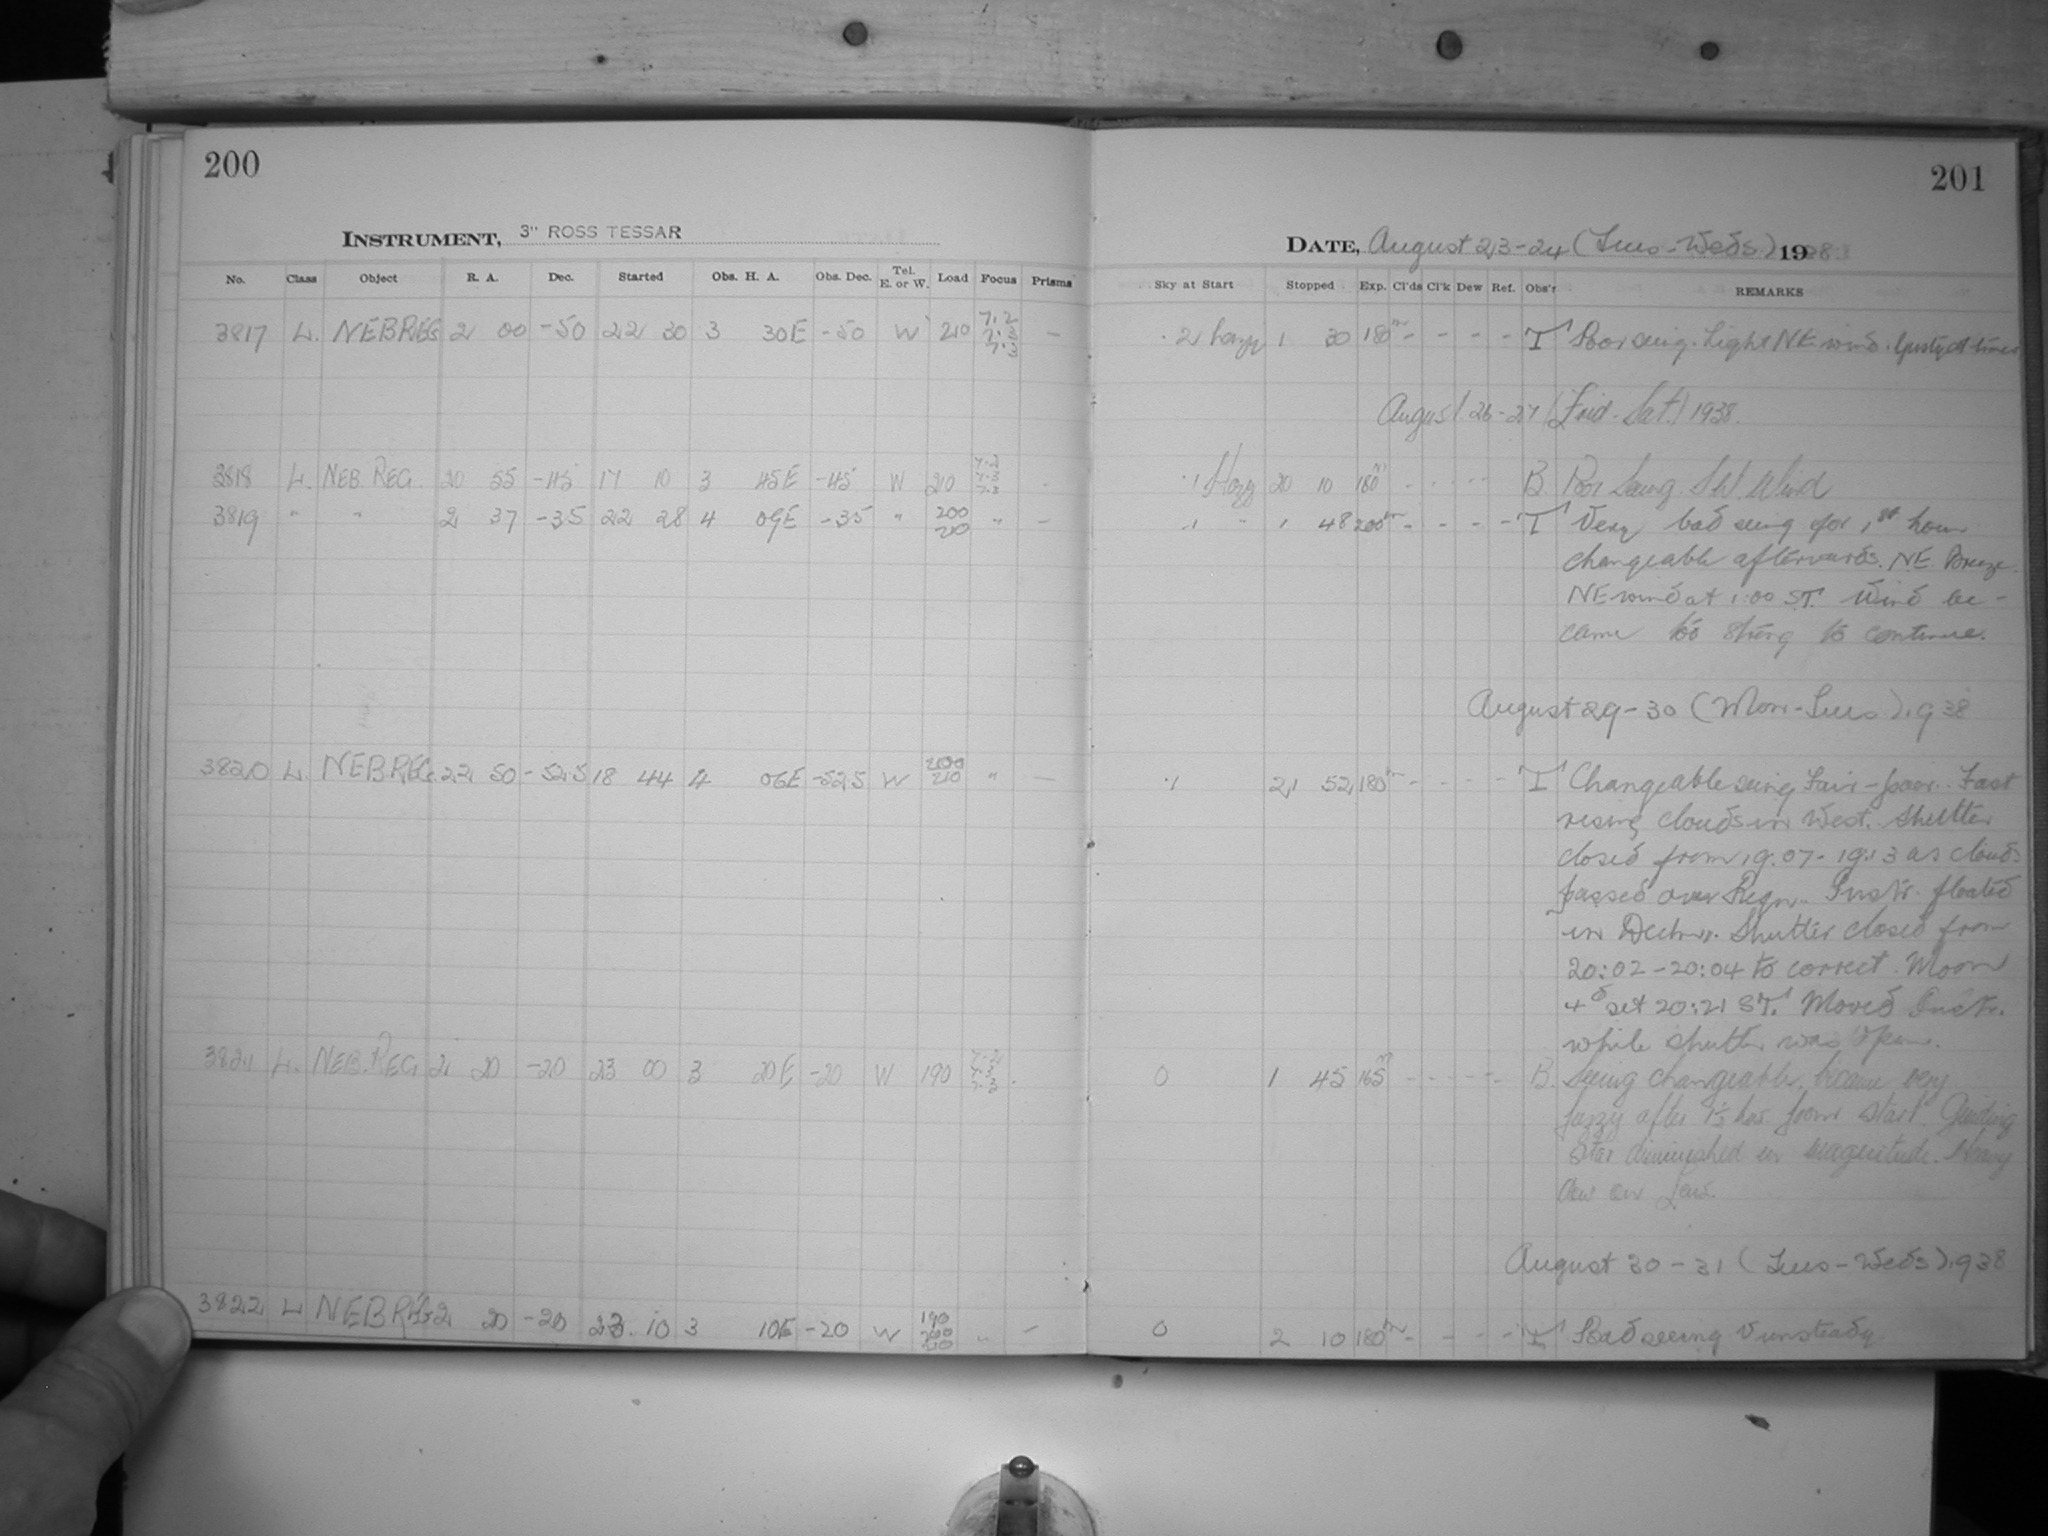 200
INSTRUMENT, 3" ROSS TESSAR
No. Class Object R. A. Dec. Started Obs. H. A. Obs. Dec. Tel. E. or W. Load Focus Prisms
3817 L. NEB REG 2 00 -50 22 30 3 30E -50 W 210 7.2 —
3818 L. NEB. REG. 20 55 -45 17 10 3 45E -45 W 210 7.2 7.3 7.3 -
3819 " " 2 37 -35 22 28 4 09E -35 " 200 210 " —
3820 L. NEB REG. 22 50 -52.5 18 44 4 06E -52.5 W 200 210 " —
3821 L. NEB. REG 2 20 -20 23 00 3 20E -20 W 190 7.2 7.3 7.3 .
3822 L NEB REG 2 20 -20 23 10 3 10E -20 W 190 200 210 " —
201
DATE, August 23-24 (Tues-Weds) 1938
Sky at Start Stopped Exp. Cl'ds Cl'k Dew Ref. Obs'r REMARKS
.2 hazy 1 30 180m - - - - T Poor seeing. Light NE wind. Gusty at times
August 26-27 (Frid-Sat.) 1938.
.1 Hazy 20 10 180m - - - - B. Poor Seeing. S.W. Wind
.1 " 1 48 200m - - - - T Very bad seeing for 1st hour
changeable afterwards. NE. Breeze.
NE wind at 1:00 ST. Wind be-
came too strong to continue.
August 29-30 (Mon-Tues) 1938
.1 21 52 180m - - - - T Changeable seeing Fair-poor. Fast
rising clouds in West. Shutter
closed from 19:07-19:13 as clouds
passed over Regn. Instr. floated
in Decln. Shutter closed from
20:02-20:04 to correct. Moon
4d set 20:21 ST. Moved Instr.
while shutter was open.
0 1 45 165m - - - - B. Seeing changeable, became very
fuzzy after 1½ hrs from start. Guiding
Star diminished in magnitude. Heavy
dew on Lens.
August 30-31 (Tues-Weds) 1938
0 2 10 180m - - - - T Bad seeing V unsteady